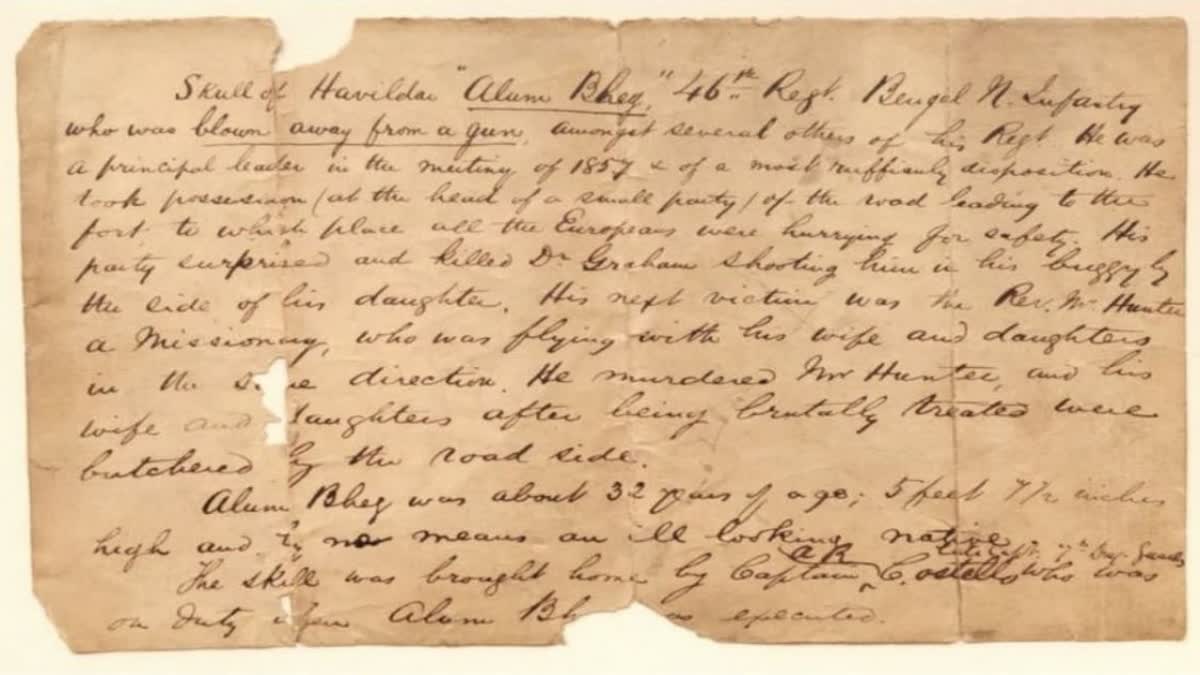 Skull of Havildar "Alum Bheg," 46th Regt. Bengal N. Infantry
who was blown away from a gun, amongst several others of his Regt. He was
a principal leader in the mutiny of 1857 & of a most ruffianly disposition. He
took possession (at the head of a small party) of the road leading to the
fort to which place all the Europeans were hurrying for safety. His
party surprised and killed Dr. Graham shooting him in his buggy by
the side of his daughter. His next victim was the Rev. Mr. Hunter
a Missionary, who was flying with his wife and daughters
in the s e direction. He murdered Mr Hunter, and his
wife and daughters after being brutally treated were
butchered by the road side.
Alum Bheg was about 32 years of age; 5 feet 7 1/2 inches
high and by no means an ill looking native.
The skull was brought home by Captain A R Costello, 7th Drag. Guards who was
on duty when Alum Bh as executed.